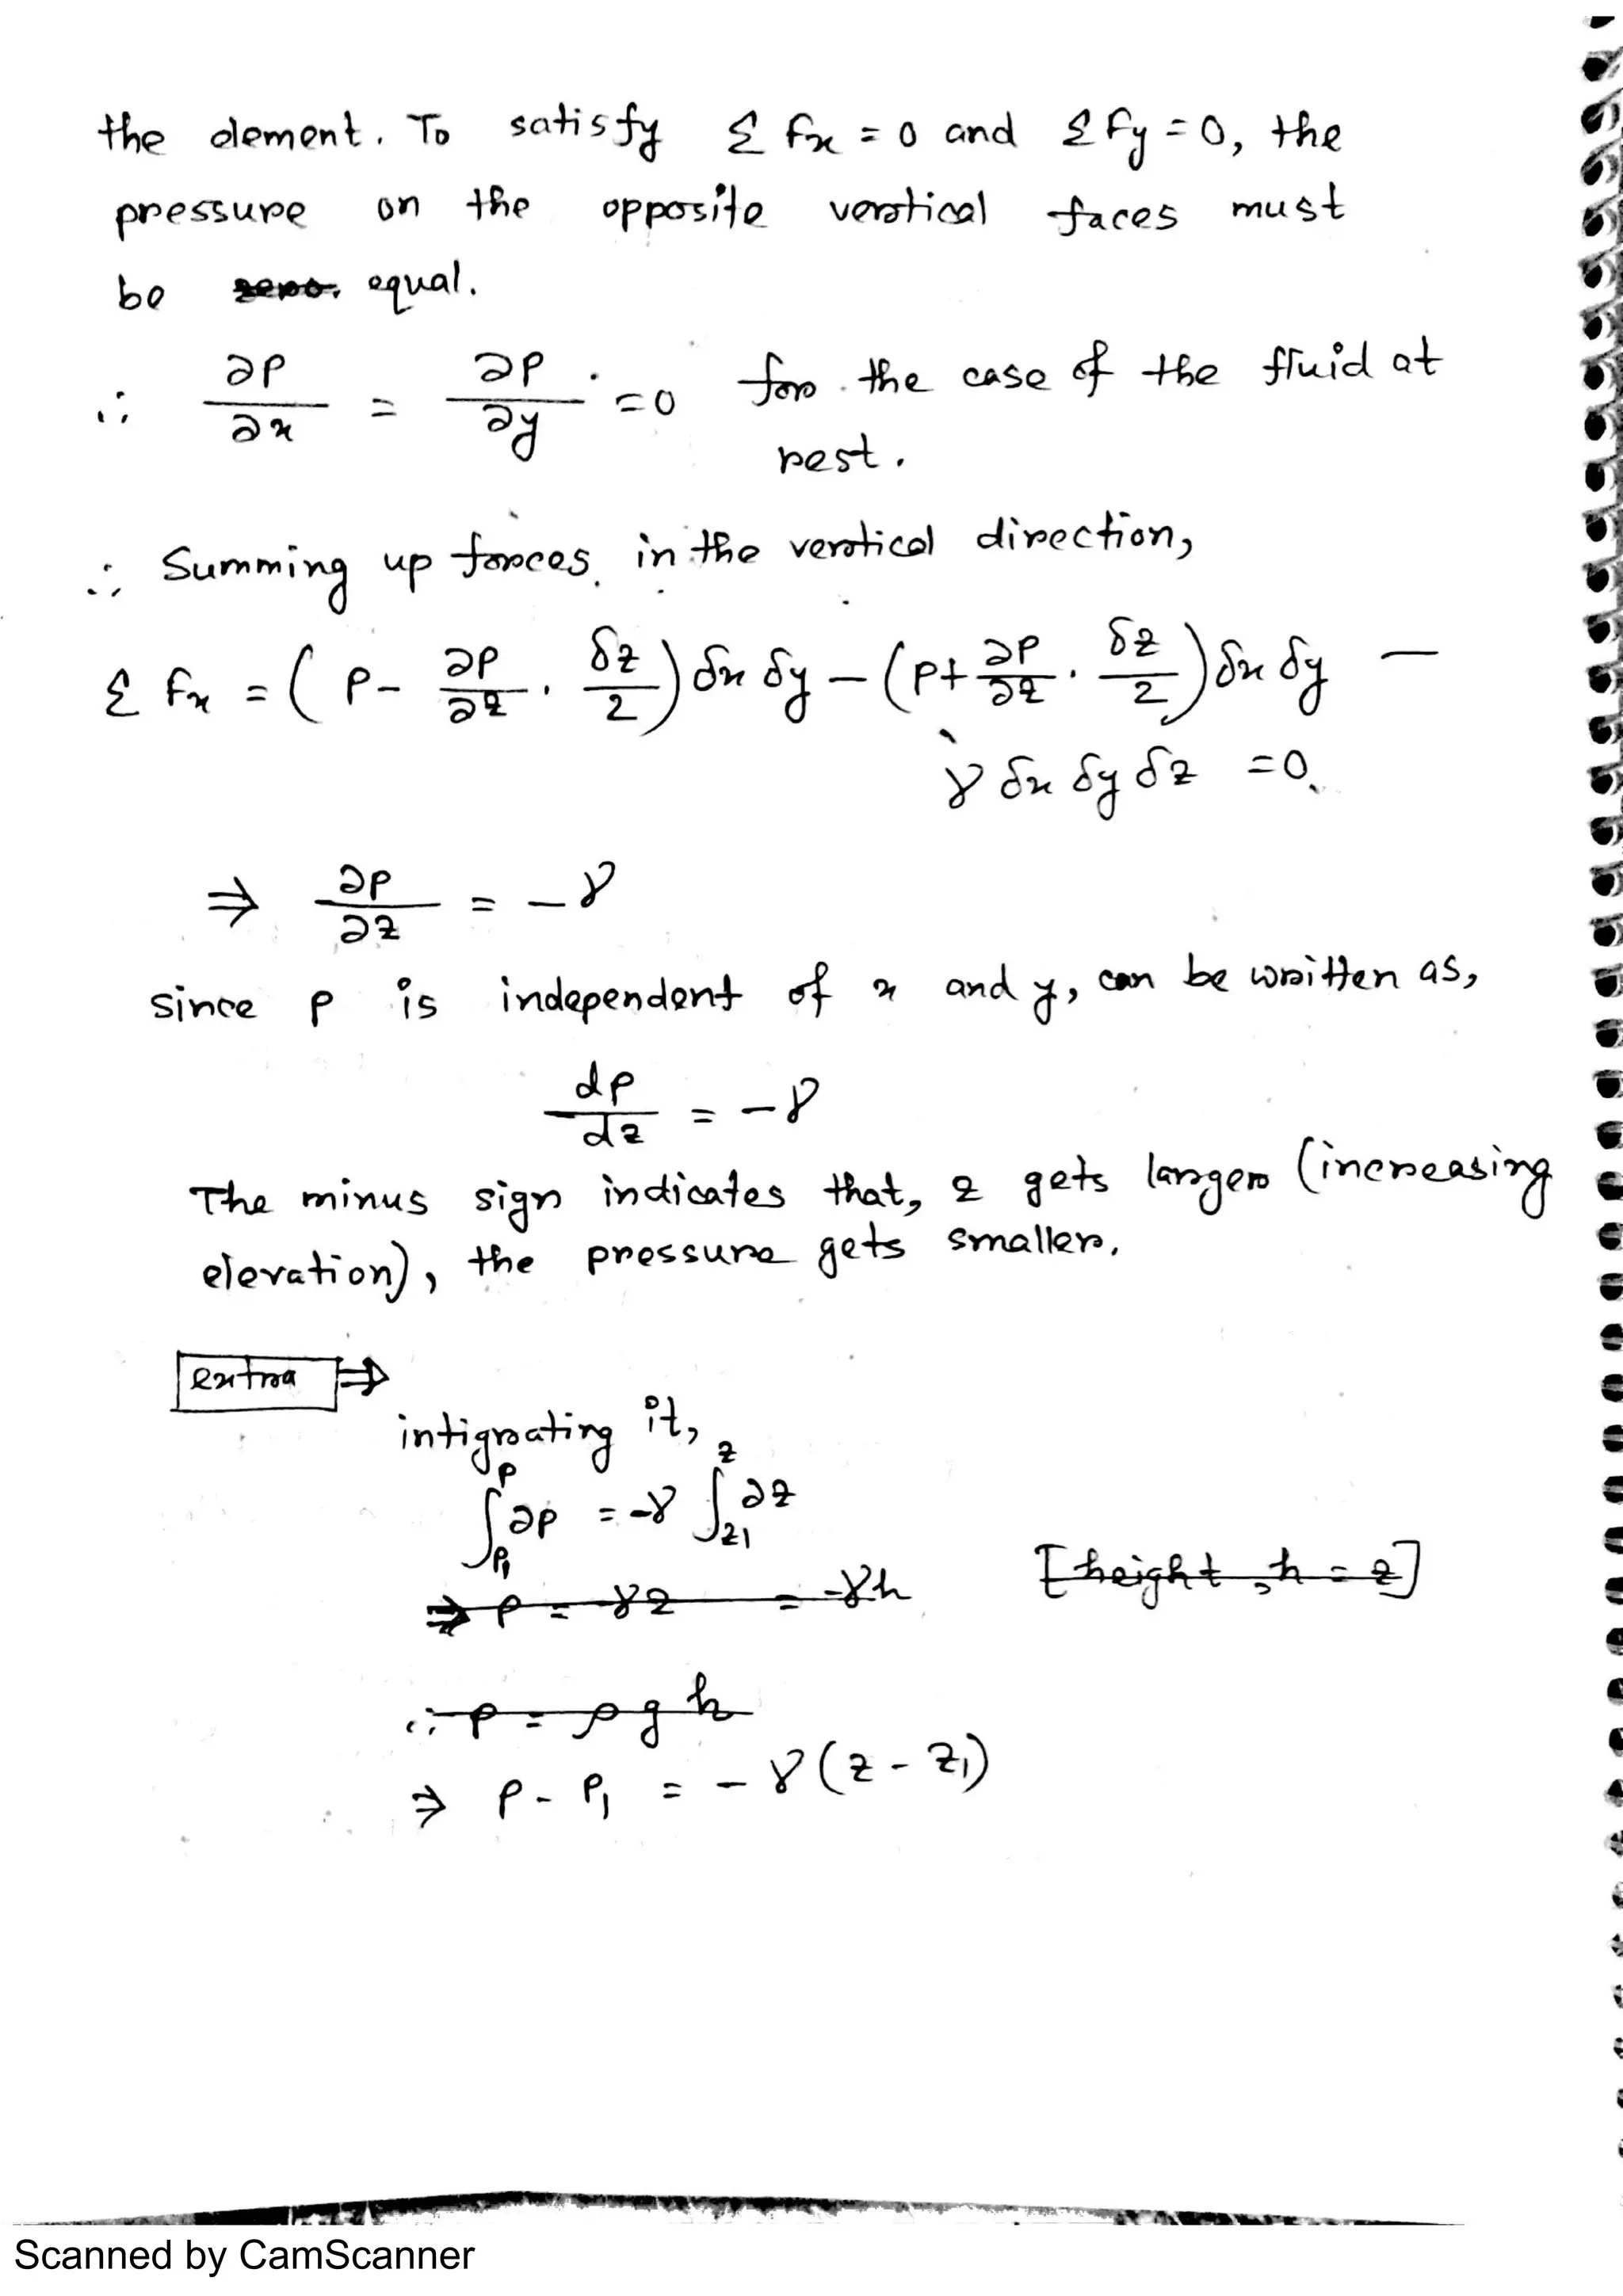 the element. To satisfy Σ Fx = 0 and Σ Fy = 0, the
pressure on the opposite vertical faces must
be ~~zero.~~ equal.
∴ ∂P/∂x = ∂P/∂y = 0 for the case of the fluid at
rest.
∴ Summing up forces in the vertical direction,
Σ Fx = (P - ∂P/∂z · δz/2) δx δy - (P + ∂P/∂z · δz/2) δx δy -
γ δx δy δz = 0
⇒ ∂P/∂z = -γ
since P is independent of x and y, can be written as,
dP/dz = -γ
The minus sign indicates that, z gets larger (increasing
elevation), the pressure gets smaller.
extra ⇒
intigrating it,
∫_{P1}^{P} ∂P = -γ ∫_{z1}^{z} ∂z
~~⇒ P = -γz = -γh~~ ~~[height, h = z]~~
~~∴ P = ρgh~~
⇒ P - P1 = - γ (z - z1)
Scanned by CamScanner